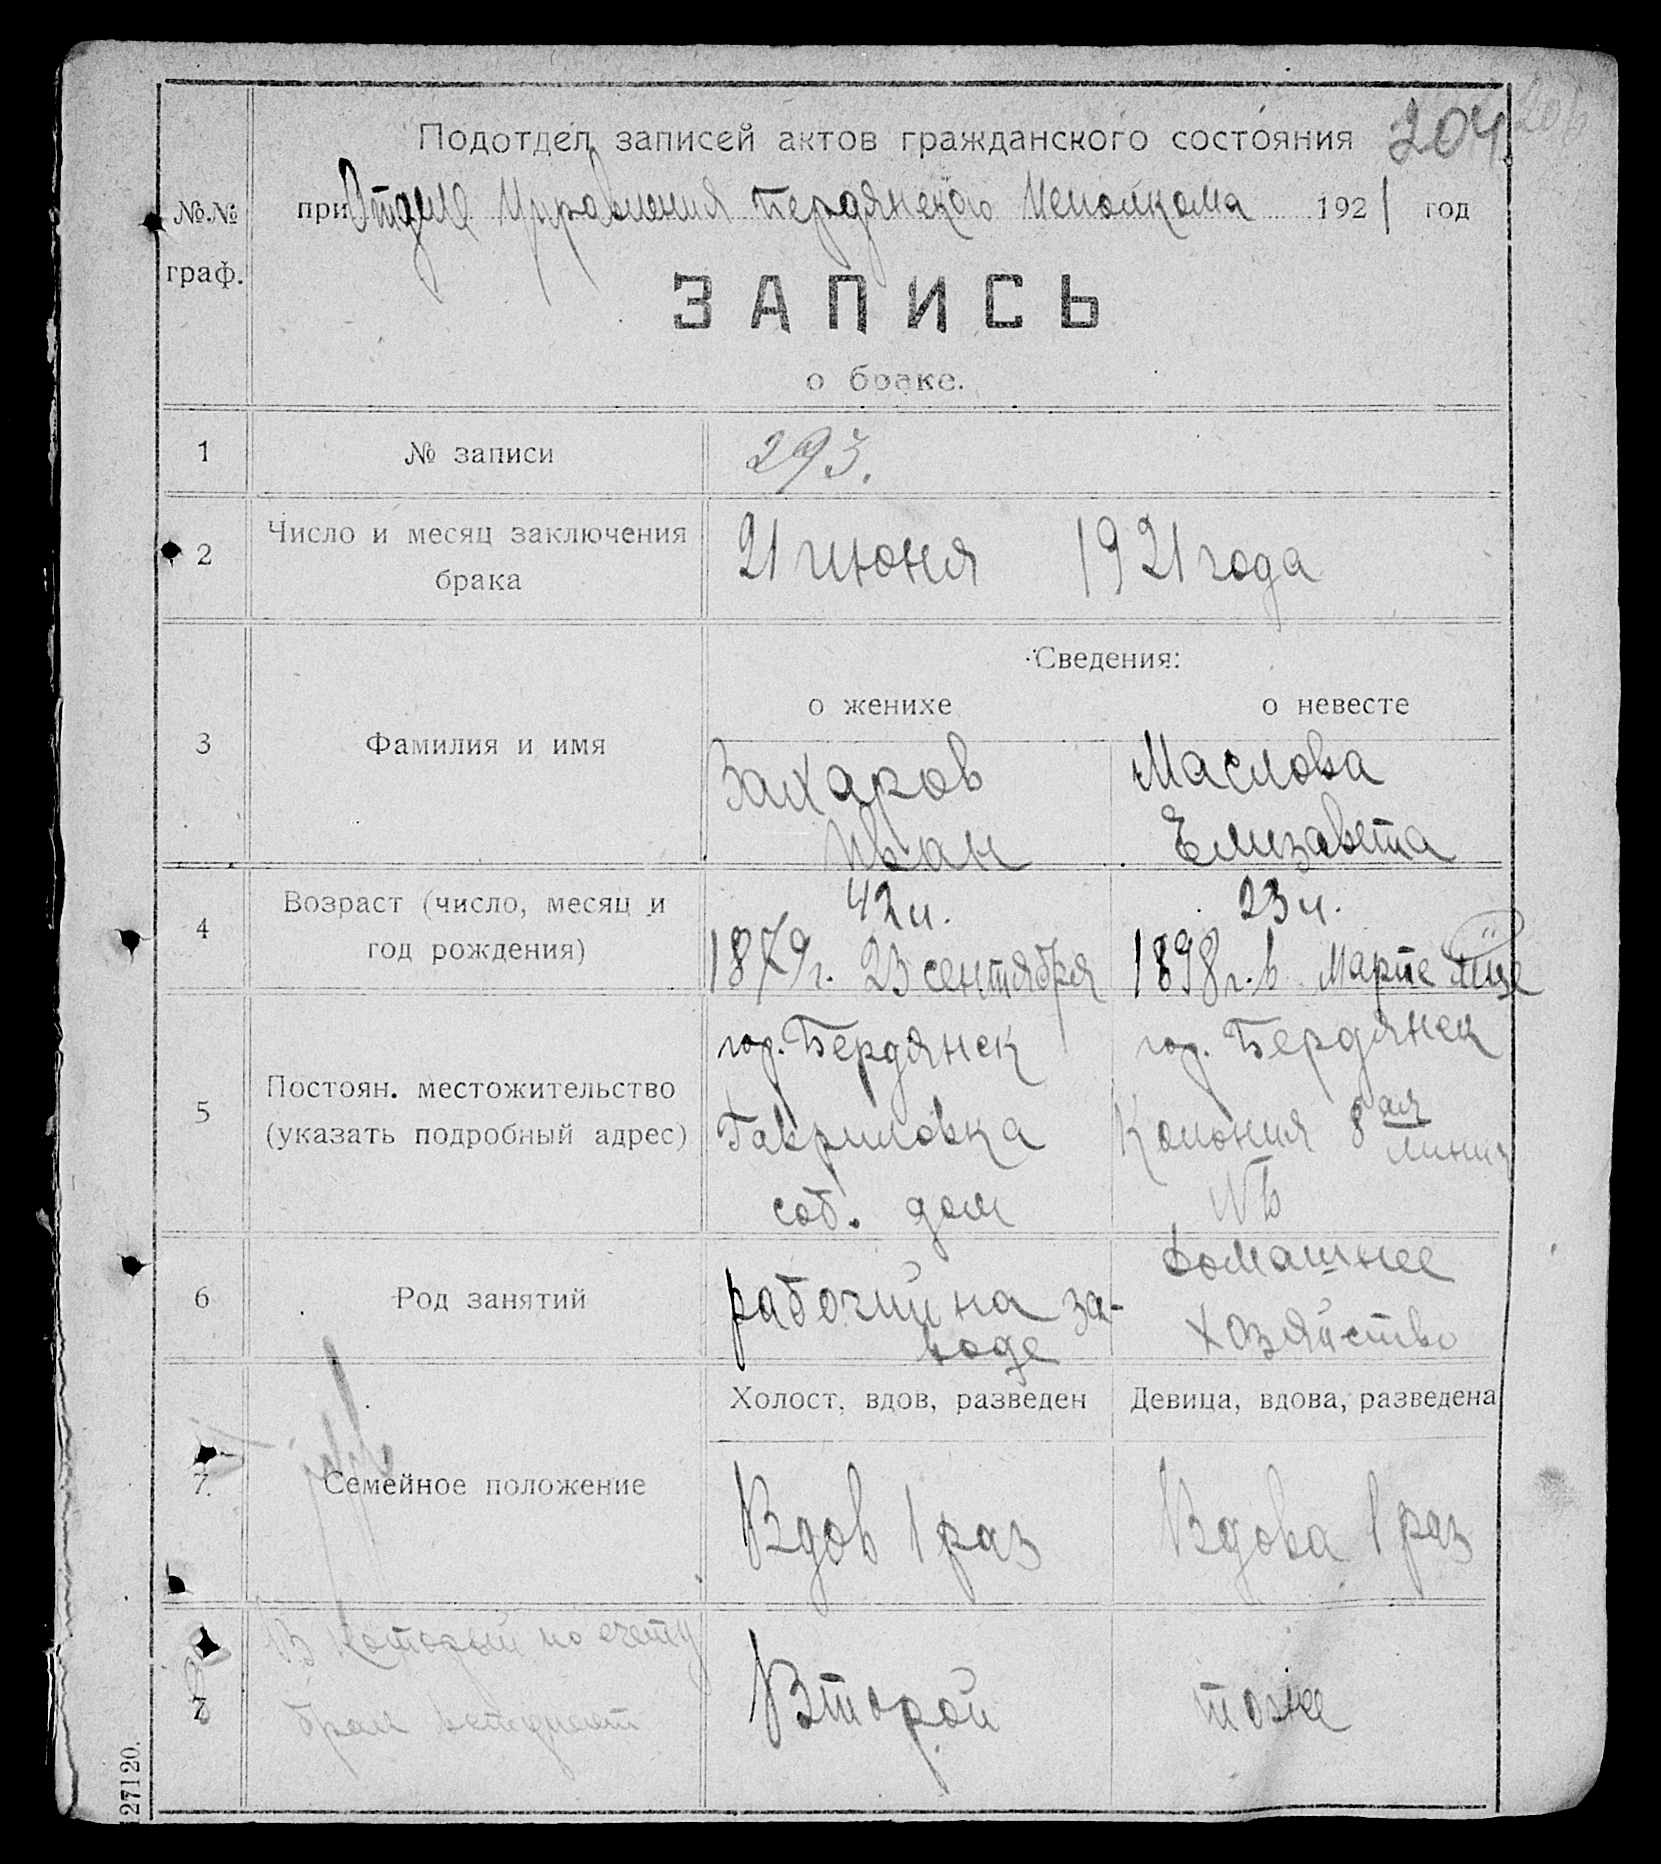 204 206
Подотдел записей актов гражданского состояния
№№
граф.
при Отделе Управления Бердянского Исполкома 1921 год
ЗАПИСЬ
о браке.
1 № записи 293.
2 Число и месяц заключения
брака
21 июня 1921 года
Сведения:
о женихе о невесте
3 Фамилия и имя
Захаров Маслова
Иван Елизавета
4 Возраст (число, месяц и
год рождения)
42 л. 23 л.
1879 г. 23 сентября 1898 г. в Марте м-це
5 Постоян. местожительство
(указать подробный адрес)
гор. Бердянск гор. Бердянск
Гавриловка Колония 8ая линия
соб. дом №
6 Род занятий
рабочий на за- домашнее
воде хозяйство
Холост, вдов, разведен Девица, вдова, разведена
7. Семейное положение
Вдов 1 раз Вдова 1 раз
В который по счету
брак вступает
Второй тоже
27120.